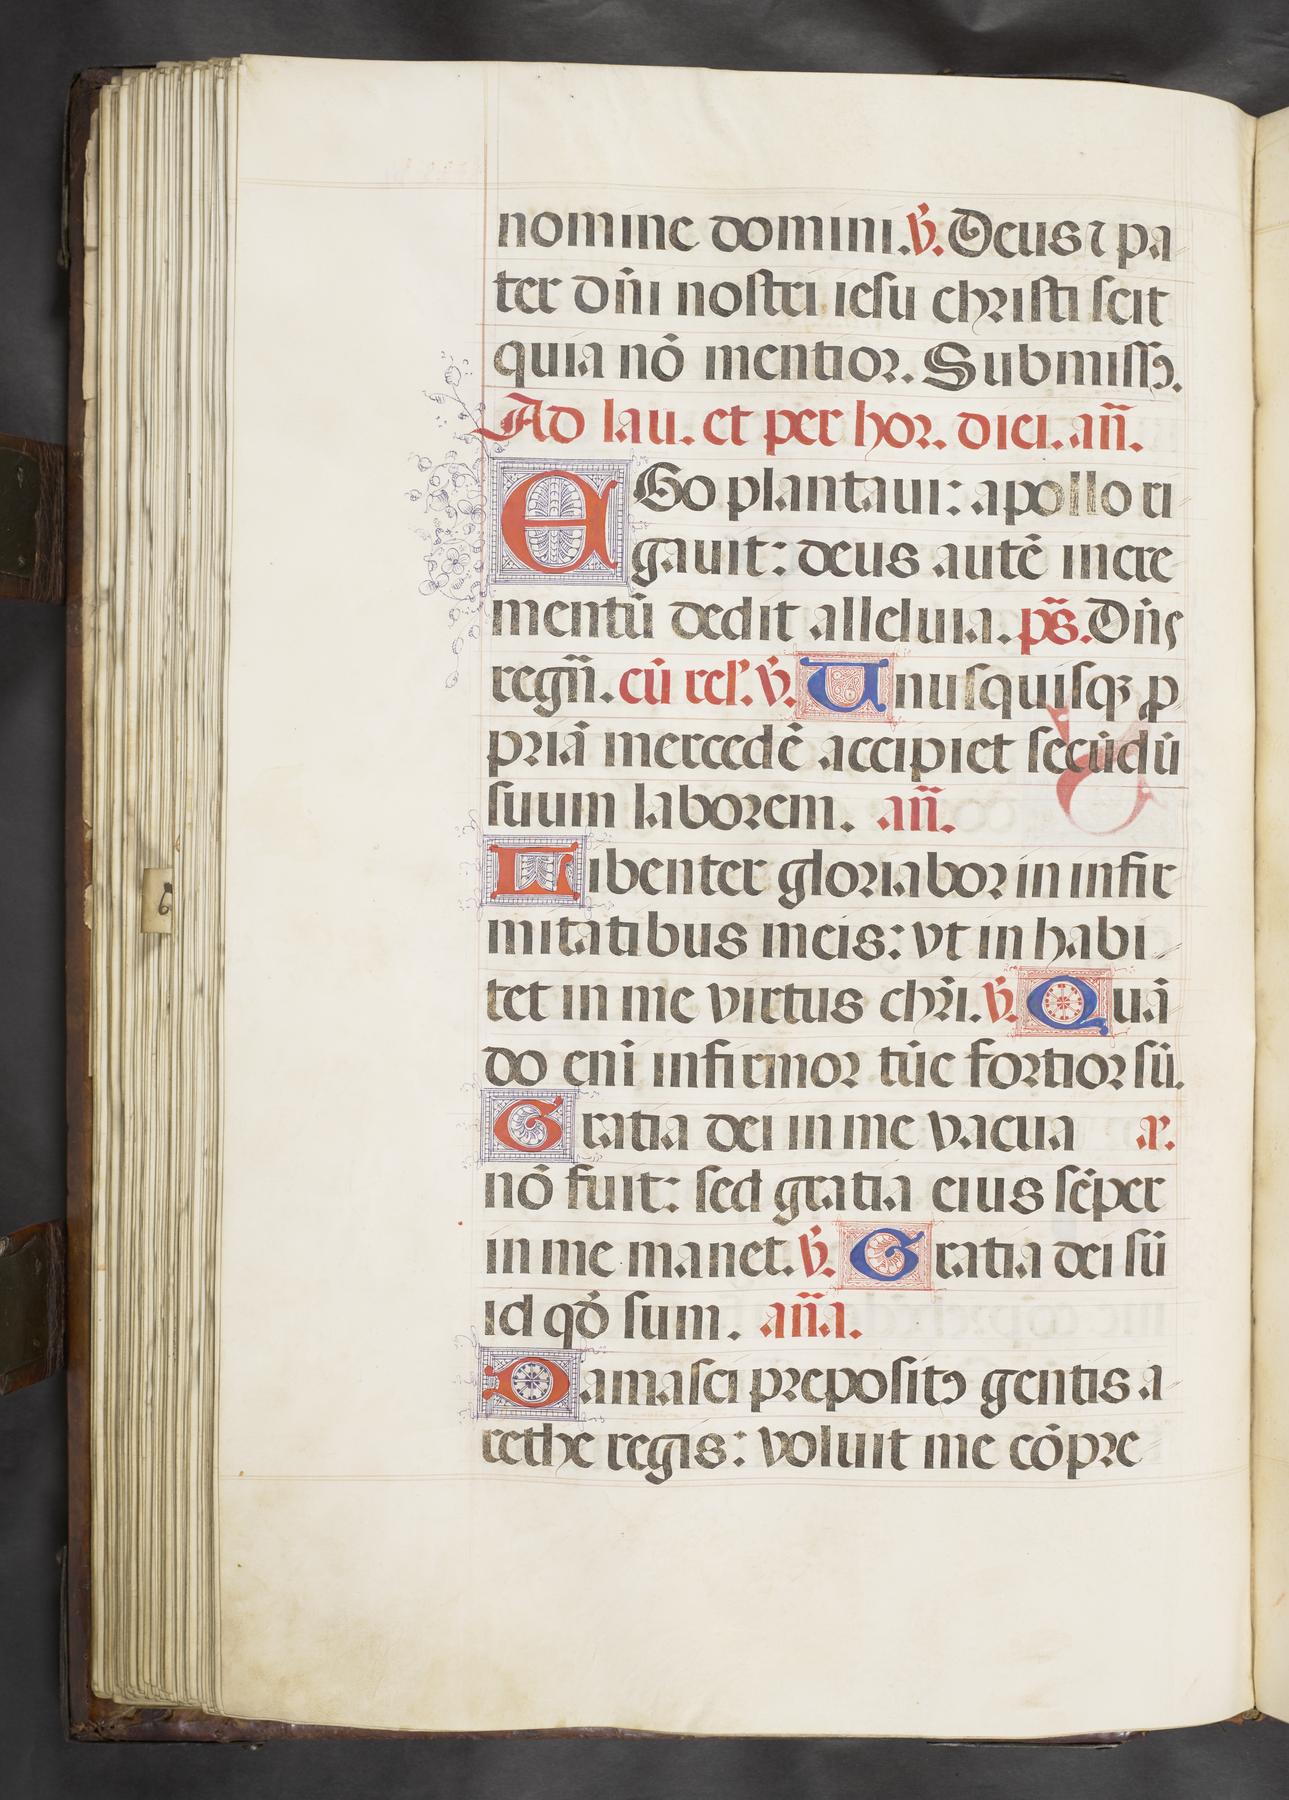 nomine domini. V̄. Deus ⁊ pa
ter dn̄i nostri iesu christi scit
quia nō mentior. Submissꝫ.
Ad lau. et per hor. dici. añ.
EGo plantaui: apollo ri
gauit: deus autē incre
mentū dedit alleluia. ps̄. Dn̄s
regñ. cū rel'. V̄. Unusquisqꝫ ꝓ
priā mercedē accipiet secūdū
suum laborem. añ.
Libenter gloriabor in infir
mitatibus meis: vt in habi
tet in me virtus chr̄i. V̄. Quā
do eni infirmor tūc fortior sū.
Gratia dei in me vacua a'.
nō fuit: sed gratia eius sēper
in me manet. V̄. Gratia dei sū
id qḋ sum. aña.
Damasci prepositꝰ gentis a
rethe regis: voluit me cōpre
6